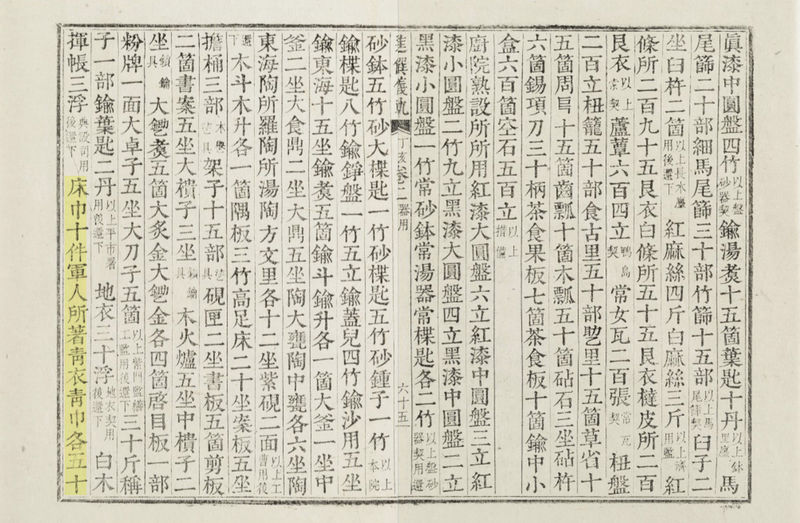 眞漆中圓盤四竹以上盤砂器契鍮湯煮十五箇葉匙十丹以上鉢里廛馬
尾篩二十部細馬尾篩三十部竹篩十五部以上馬尾篩契臼子二
坐臼杵二箇以上長木廛用後還下紅麻絲四斤白麻絲三斤以上濟用監紅
條所二百九十五艮衣白條所五十五艮衣㯓皮所二百
艮衣以上索契蘆蕈六百四立鴨島契常女瓦二百張常瓦契杻盤
二百立杻籠五十部食古里五十部里十五箇草省十
五箇周巨十五箇齒瓢十箇木瓢五十箇砧石三坐砧杵
六箇錫項刀三十柄茶食果板七箇茶食板十箇鍮中小
盒六百箇空石五百立以上措備
廚院熟設所所用紅漆大圓盤六立紅漆中圓盤三立紅
漆小圓盤二竹九立黑漆大圓盤四立黑漆中圓盤二立
黑漆小圓盤一竹常砂鉢常湯器常楪匙各二竹以上盤砂器契用還
進饌儀軌 丁亥 卷二 器用 六十五
砂鉢五竹砂大楪匙一竹砂楪匙五竹砂鍾子一竹以上本院
鍮楪匙八竹鍮錚盤一竹五立鍮蓋兒四竹鍮沙用五坐
鍮東海十五坐鍮煮五箇鍮斗鍮升各一箇大釜一坐中
釜二坐大食鼎二坐大鼎五坐陶大甕陶中甕各六坐陶
東海陶所羅陶所湯陶方文里各十二坐紫硯二面以上工曹用後
還下木斗木升各一箇隅板三竹高足床二十坐案板五坐
擔桶三部木契架子十五部硯匣二坐書板五箇剪板
二箇書案五坐大樻子三坐鎖鑰具木火爐五坐中樻子二
坐鎖鑰具大煮五箇大炙金大金各四箇啓目板一部
粉牌一面大卓子五坐大刀子五箇以上紫門監三十斤稱
子一部鍮葉匙二丹以上平市署用後還下地衣三十浮地衣契用後還下白木
揮帳三浮典設司用後還下床巾十件軍人所著靑衣靑巾各五十